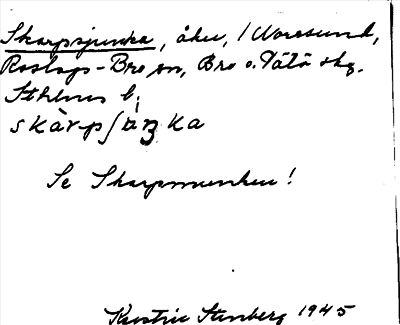 Skarpsjunka, åker, / Woresund,
Roslags-Bro sn, Bro o. Vätö skg.
Sthlms l.
skàrpʃɯŋka
Se Skarpmunken!
Kerstin Stenberg 1945